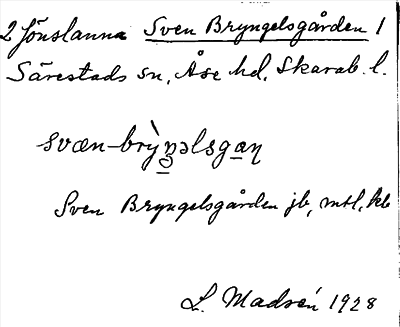 2 Jönslanna Sven Bryngelsgården 1
Särestads sn, Åse hd, Skarab. l.
svæn-brỳŋəlsgaɳ
Sven Bryngelsgården jb, mtl, kb
L. Madsén 1928